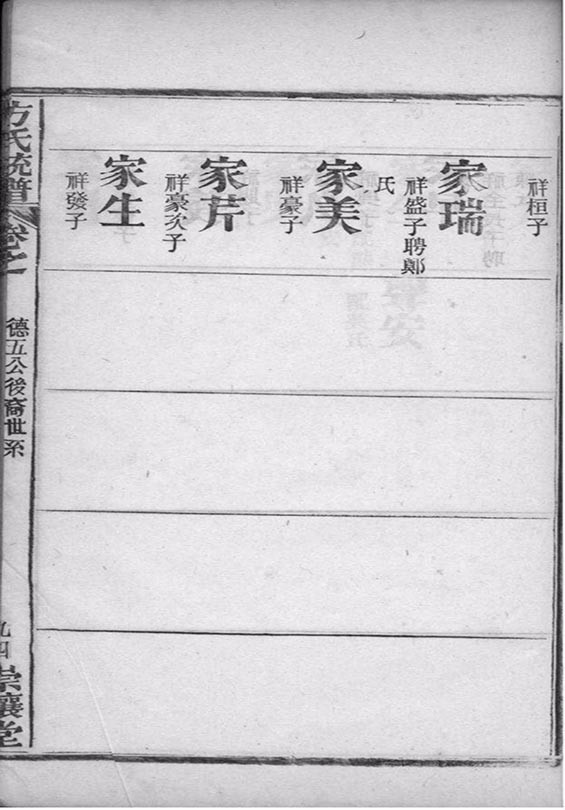 祥桓子
家瑞
祥盛子聘鄭
氏
家美
祥豪子
家芹
祥豪次子
家生
祥發子
方氏統譜
卷之
德五公後裔世系
九四
崇讓堂